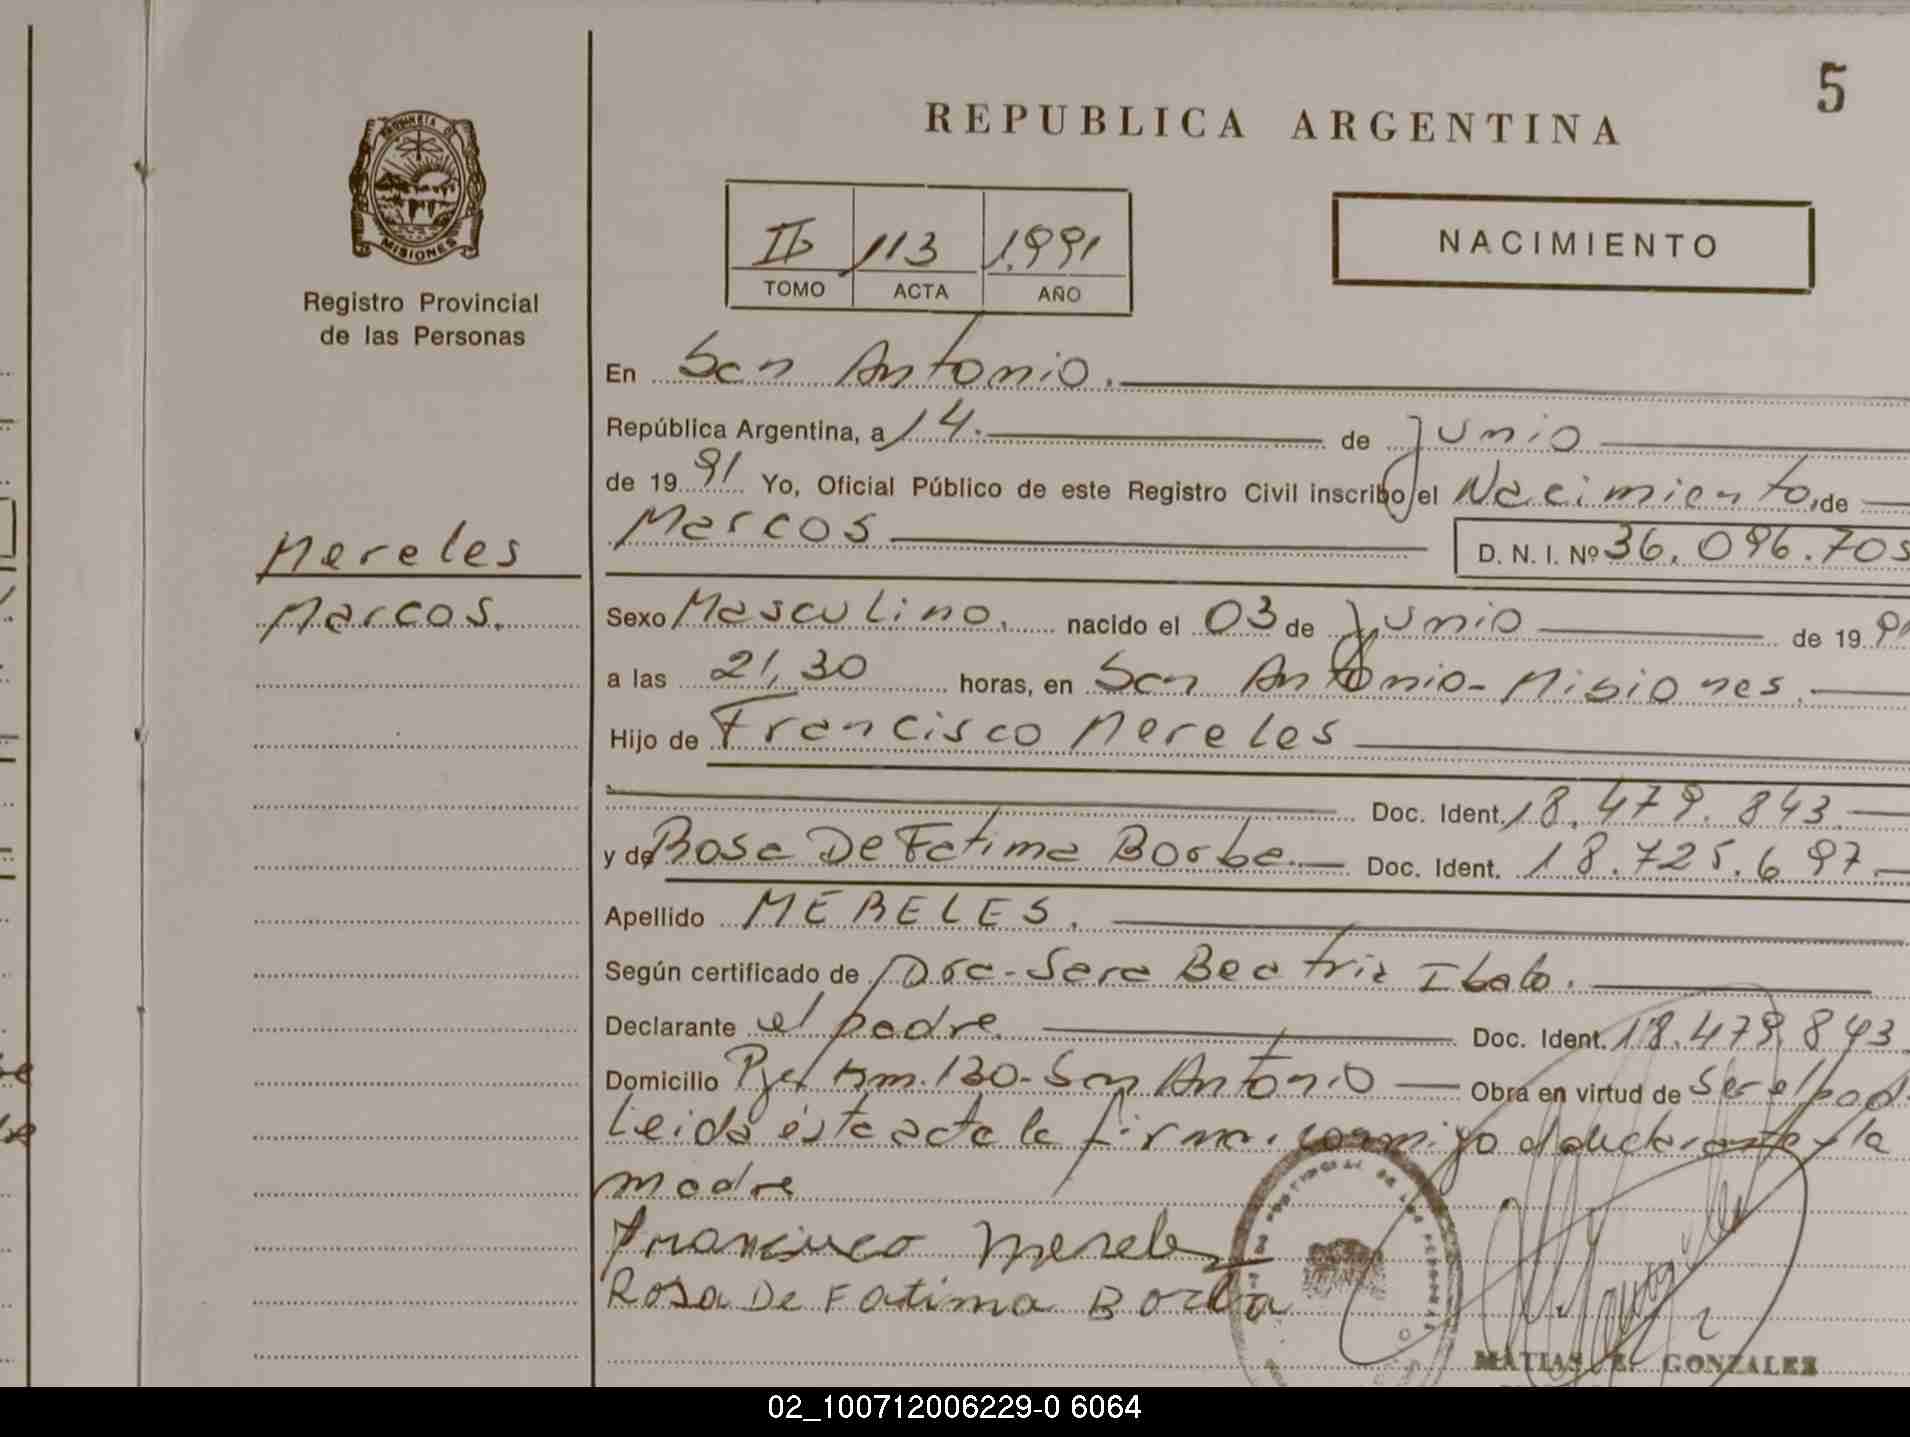 5
REPUBLICA ARGENTINA
PROVINCIA DE
MISIONES
Registro Provincial
de las Personas
II 113 1.991
TOMO ACTA AÑO
NACIMIENTO
En San Antonio.
República Argentina, a 14. de Junio
de 19 91 Yo, Oficial Público de este Registro Civil inscribo el Nacimiento, de
Mereles
Marcos D. N. I. Nº 36.096.705
Marcos.
Sexo Masculino. nacido el 03 de Junio de 19 91
a las 21,30 horas, en San Antonio - Misiones.
Hijo de Francisco Mereles
Doc. Ident. 18.479.843
y de Rosa De Fatima Borba. Doc. Ident. 18.725.697
Apellido MERELES.
Según certificado de Dra. Sara Beatriz
Declarante el padre. Doc. Ident. 18.479.843
Domicilio Pje Km. 130 - San Antonio Obra en virtud de ser el pad
Leida ésta acta la firma conmigo el declarante y la
madre
Francisco Mereles
Rosa De Fatima Borba
MATIAS E. GONZALEZ
02_100712006229-0 6064